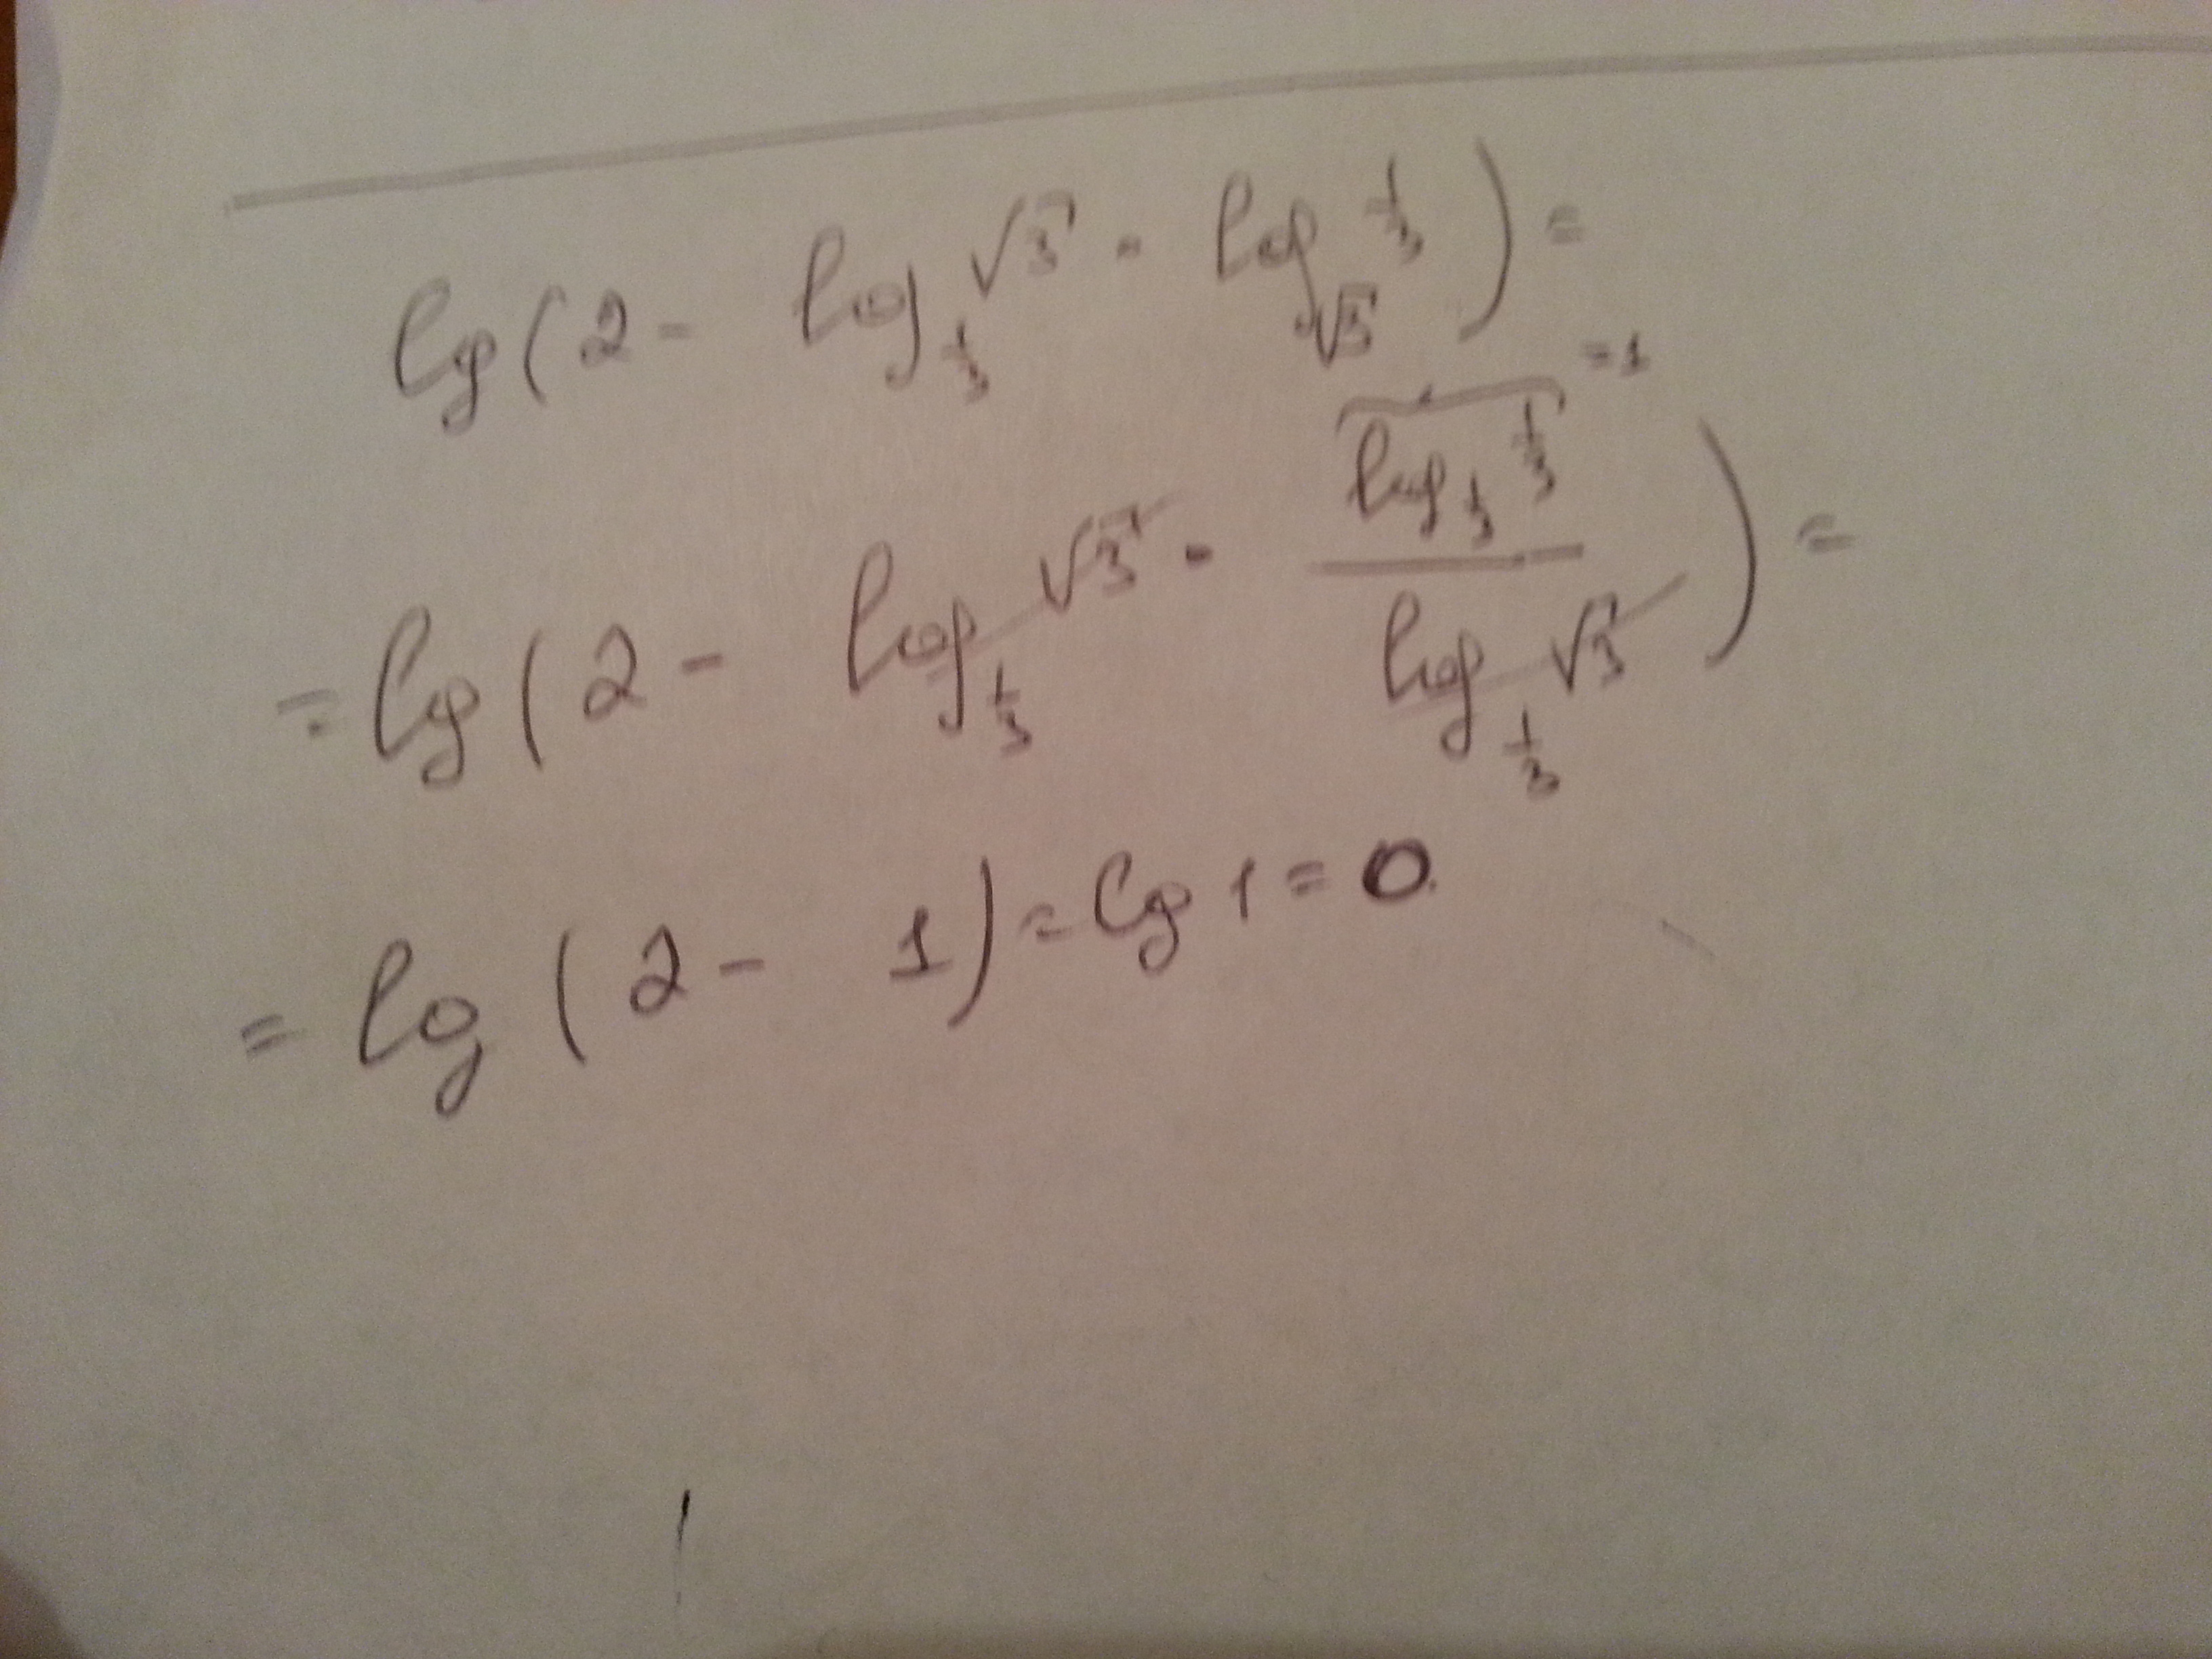 lg(2 - log_{1/3} √3 · log_{√3} 1/3) =
= lg(2 - log_{1/3} √3 · (log_{1/3} 1/3)/(log_{1/3} √3)) = =1
= lg(2 - 1) = lg 1 = 0